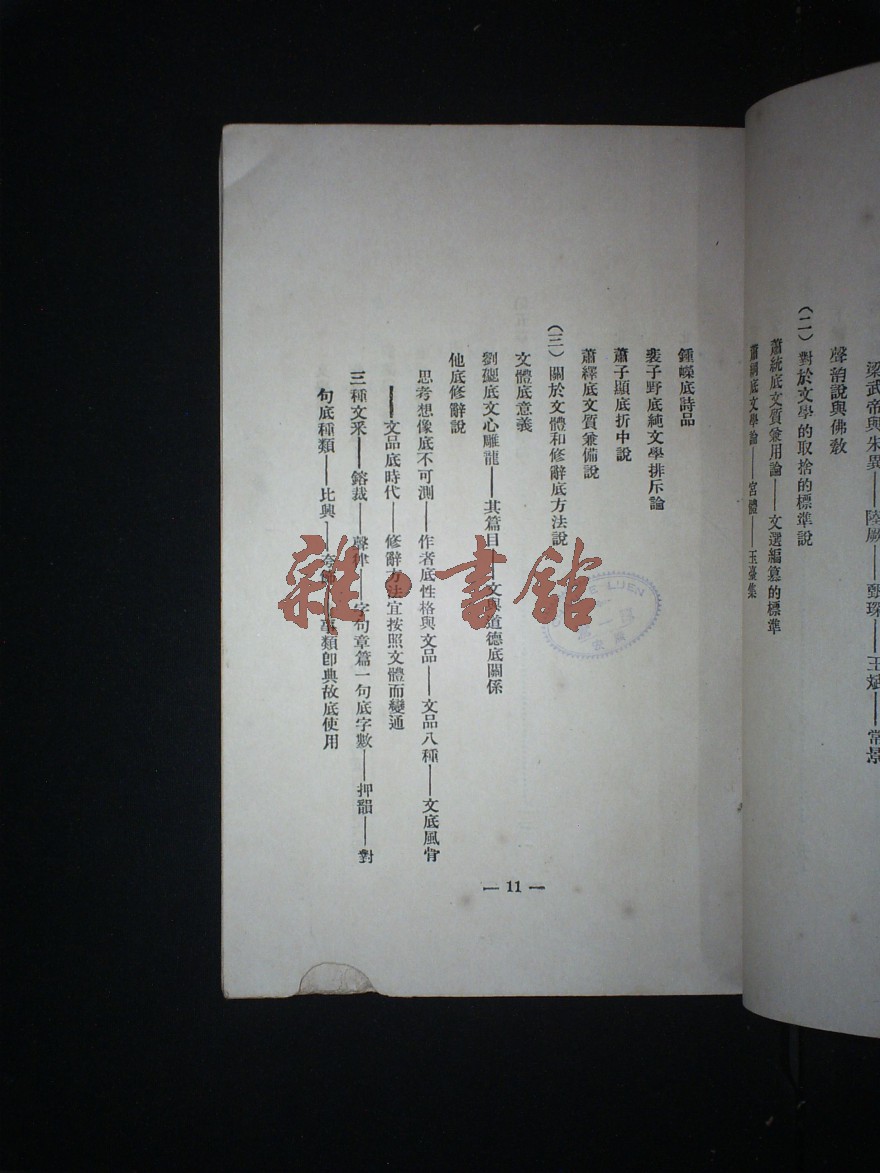 梁武帝與朱异——陸厥——甄琛——王斌——常景
聲病說與佛敎
（二）對於文學的取捨的標準說
蕭統底文質兼用論——文選編纂的標準
蕭綱底文學論——宮體——玉臺集
鍾嶸底詩品
裴子野底純文學排斥論
蕭子顯底折中說
蕭繹底文質兼備說
（三）關於文體和修辭底方法說
文體底意義
劉勰底文心雕龍——其篇目——文與道德底關係
他底修辭說
思考想像底不可測——作者底性格與文品——文品八種——文底風骨
——文品底時代——修辭方法宜按照文體而變通
三種文采——鎔裁——聲律——字句章篇一句底字數——押韻——對
句底種類——比興——夸飾——事類卽典故底使用
— 11 —
雜·書館
LUEN